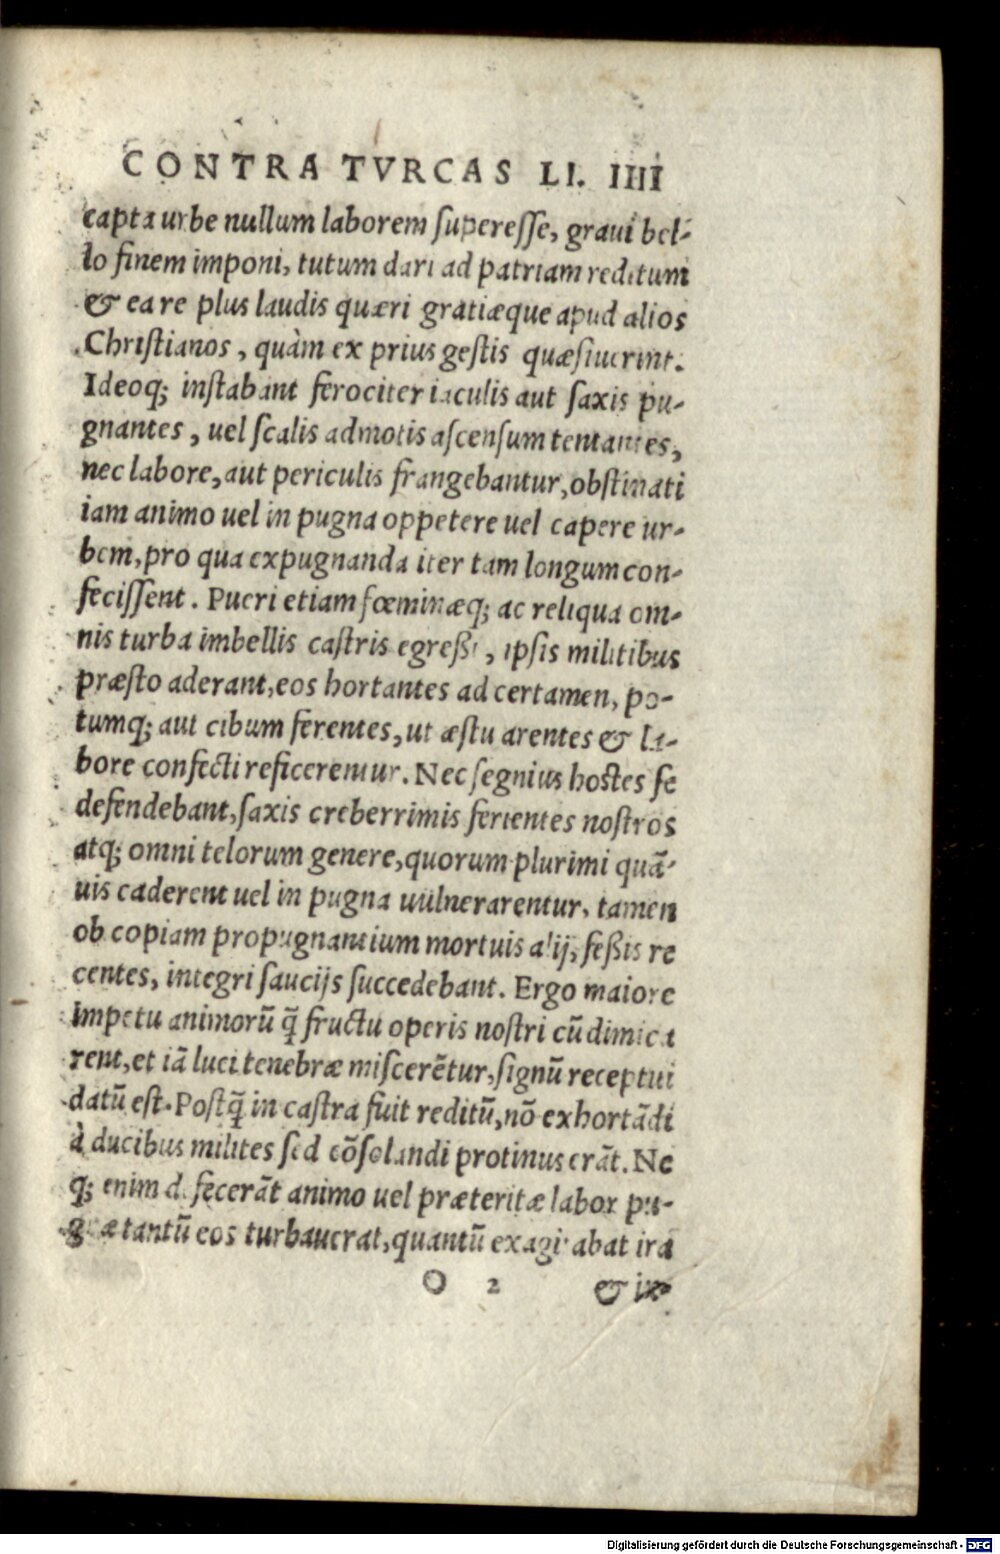 CONTRA TVRCAS LI. IIII
capta urbe nullum laborem superesse, graui bel-
lo finem imponi, tutum dari ad patriam reditum
& ea re plus laudis quæri gratiæque apud alios
Christianos, quàm ex prius gestis quæsiuerint.
Ideoq; instabant ferociter iaculis aut saxis pu-
gnantes, uel scalis admotis ascensum tentantes,
nec labore, aut periculis frangebantur, obstinati
iam animo uel in pugna oppetere uel capere ur-
bem, pro qua expugnanda iter tam longum con-
fecissent. Pueri etiam fœminæq; ac reliqua om-
nis turba imbellis castris egreßi, ipsis militibus
præsto aderant, eos hortantes ad certamen, po-
tumq; aut cibum ferentes, ut æstu arentes & la-
bore confecti reficerentur. Nec segnius hostes se
defendebant, saxis creberrimis ferientes nostros
atq; omni telorum genere, quorum plurimi quã-
uis caderent uel in pugna uulnerarentur, tamen
ob copiam propugnantium mortuis alij, feßis re
centes, integri saucijs succedebant. Ergo maiore
impetu animorũ q̃ fructu operis nostri cũ dimica
rent, et iã luci tenebræ miscerẽtur, signũ receptui
datũ est. Postq̃ in castra fuit reditũ, nõ exhortãdi
à ducibus milites sed cõsolandi protinus erãt. Ne
q; enim defecerãt animo uel præteritæ labor pu-
gnæ tantũ eos turbauerat, quantũ exagitabat ira
O 2 & ix
Digitalisierung gefördert durch die Deutsche Forschungsgemeinschaft - DFG